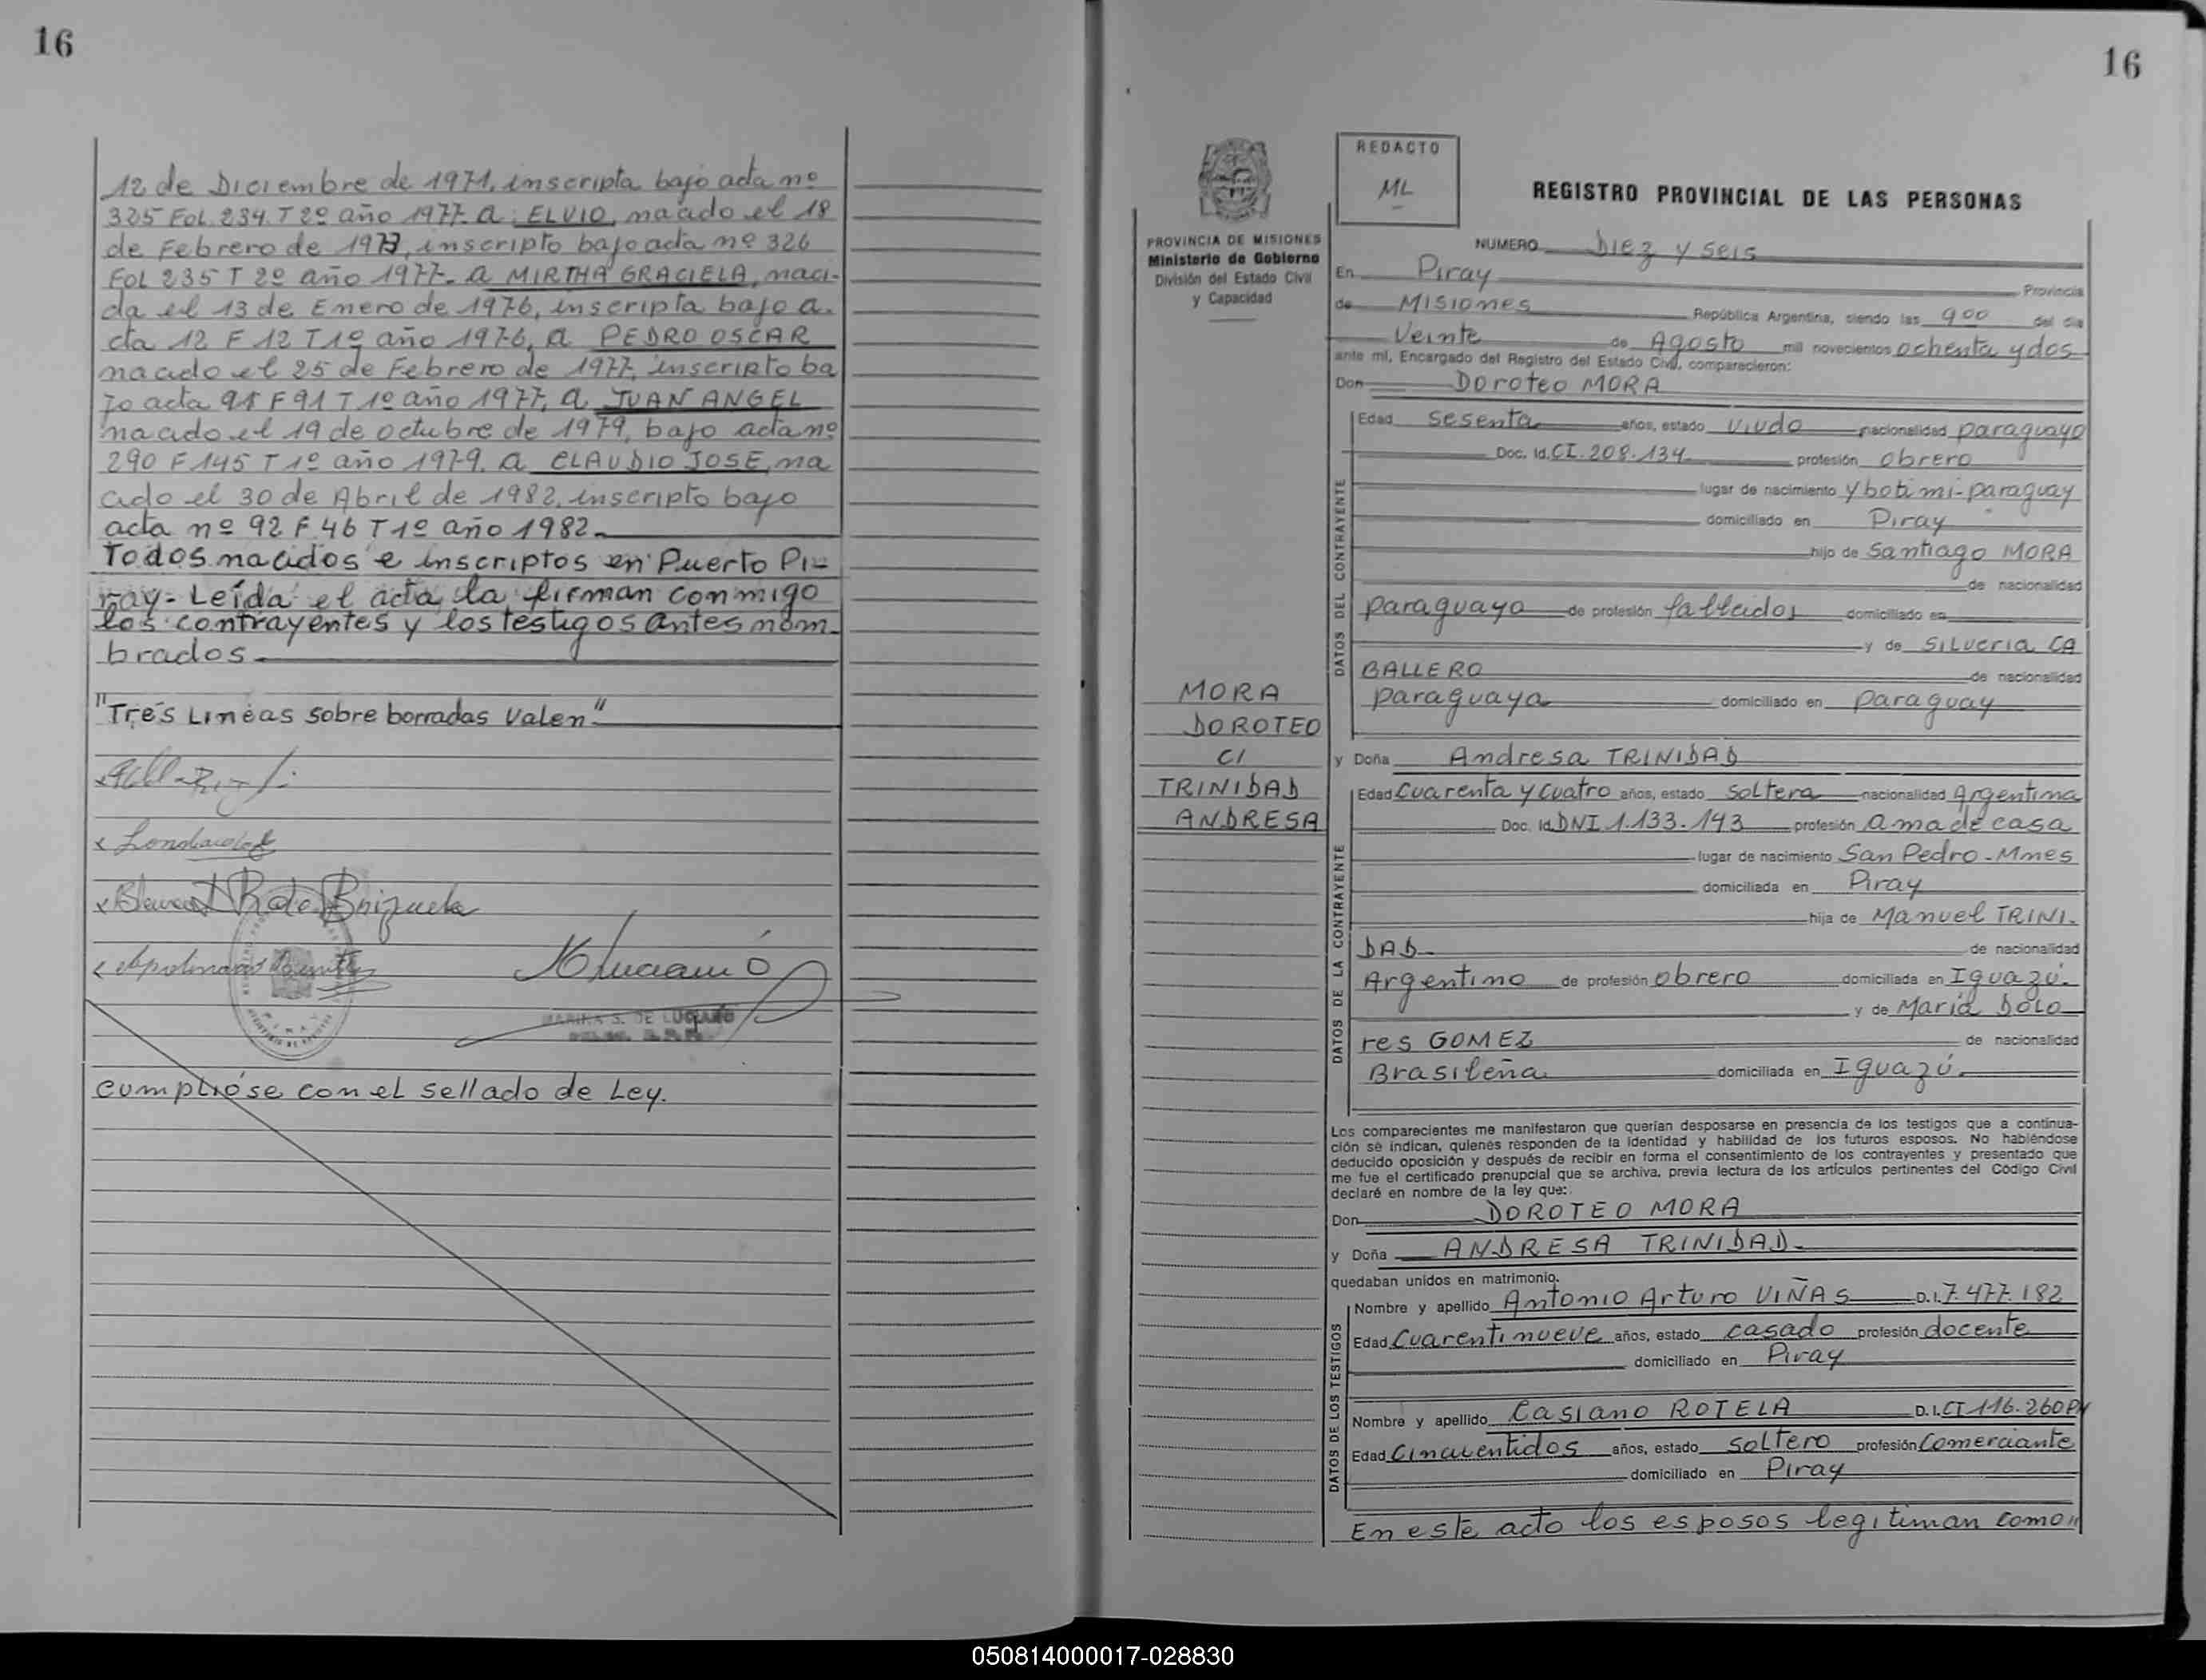 16
12 de Diciembre de 1971, inscripta bajo acta nº
325 Fol. 234. T 2º año 1977. a ELVIO, nacido el 18
de Febrero de 1973, inscripto bajo acta nº 326
Fol 235 T 2º año 1977. a MIRTHA GRACIELA, naci-
da el 13 de Enero de 1976, inscripta bajo a.
cta 12 F 12 T 1º año 1976, a PEDRO OSCAR
nacido el 25 de Febrero de 1977, inscripto ba
jo acta 91 F 91 T 1º año 1977, a JUAN ANGEL
nacido el 19 de octubre de 1979, bajo acta nº
290 F 145 T 1º año 1979. a CLAUDIO JOSE, na
cido el 30 de Abril de 1982, inscripto bajo
acta nº 92 F. 46 T 1º año 1982.-
Todos nacidos e inscriptos en Puerto Pi-
ray- Leída el acta, la firman conmigo
los contrayentes y los testigos antes nom-
brados.
"Tres Lineas sobre borradas Valen"
MARINA S. DE LUCIANO
cumplióse con el sellado de Ley.
16
PROVINCIA DE MISIONES
Ministerio de Gobierno
División del Estado Civil
y Capacidad
MORA
DOROTEO
C/
TRINIDAD
ANDRESA
REDACTO
ML
REGISTRO PROVINCIAL DE LAS PERSONAS
NUMERO Diez y seis
En Piray Provincia
de Misiones República Argentina, siendo las 9 00 del día
Veinte de Agosto mil novecientos ochenta y dos
ante mí, Encargado del Registro del Estado Civil, comparecieron:
Don Doroteo MORA
DATOS DEL CONTRAYENTE
Edad sesenta años, estado viudo nacionalidad paraguayo
Doc. Id. CI. 208.134 profesión obrero
lugar de nacimiento Yboti mi-paraguay
domiciliado en Piray
hijo de Santiago MORA
de nacionalidad
paraguayo de profesión fallecidos domiciliado en
y de SILveria CA
BALLERO de nacionalidad
paraguaya domiciliado en paraguay
y Doña Andresa TRINIDAD
DATOS DE LA CONTRAYENTE
Edad Cuarenta y cuatro años, estado soltera nacionalidad Argentina
Doc. Id. DNI 1.133.143 profesión ama de casa
lugar de nacimiento San Pedro-Mnes
domiciliada en Piray
hija de Manuel TRINI-
DAD de nacionalidad
Argentino de profesión obrero domiciliada en Iguazú.
y de Maria Dolo
res GOMEZ de nacionalidad
Brasileña domiciliada en Iguazú.
Los comparecientes me manifestaron que querían desposarse en presencia de los testigos que a continua-
ción se indican, quienes responden de la identidad y habilidad de los futuros esposos. No habiéndose
deducido oposición y después de recibir en forma el consentimiento de los contrayentes y presentado que
me fue el certificado prenupcial que se archiva, previa lectura de los artículos pertinentes del Código Civil
declaré en nombre de la ley que:
Don DOROTEO MORA
y Doña ANDRESA TRINIDAD.
quedaban unidos en matrimonio.
DATOS DE LOS TESTIGOS
Nombre y apellido Antonio Arturo VIÑAS D.I. 7.477.182
Edad Cuarentinueve años, estado casado profesión docente
domiciliado en Piray
Nombre y apellido Casiano ROTELA D.I. CI 116.260 PY
Edad Cincuentidos años, estado soltero profesión Comerciante
domiciliado en Piray
En este acto los esposos legitiman como//
050814000017-028830